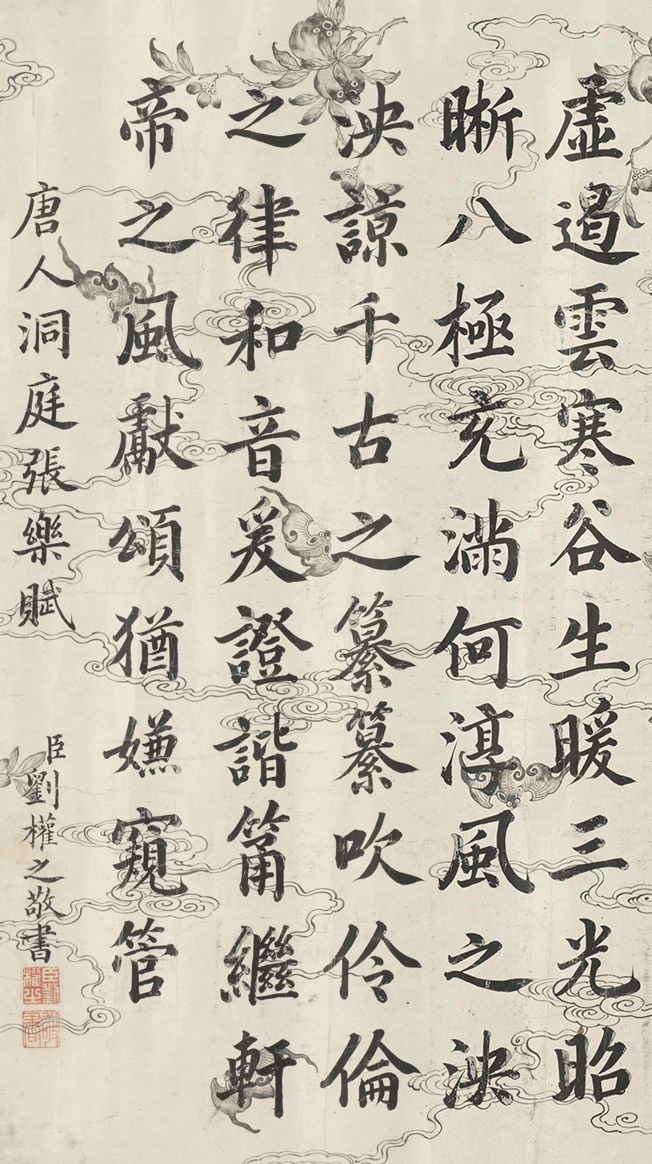 虛遏雲寒谷生暖三光昭
晰八極充滿何淳風之泱
泱諒千古之纂纂吹伶倫
之律和音爰證諧筩繼軒
帝之風獻頌猶嫌窺管
唐人洞庭張樂賦
臣劉權之敬書
臣劉權之